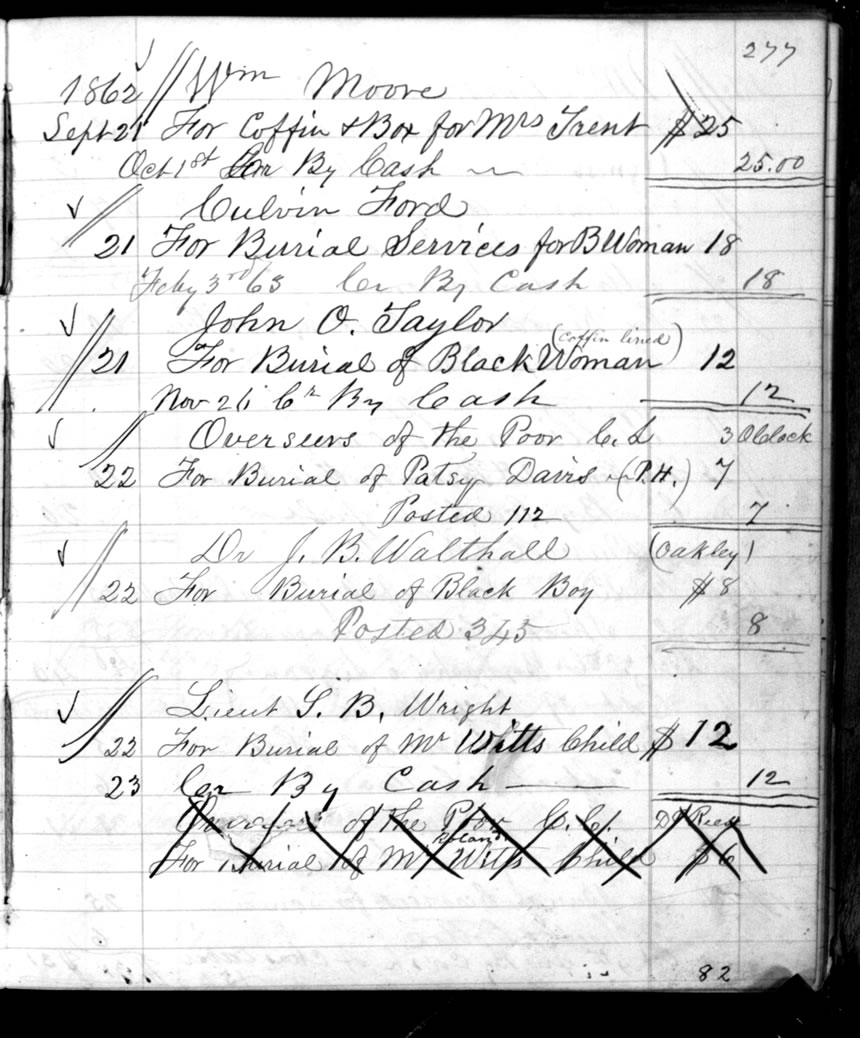 277
1862 Wm Moore
Sept 21 For Coffin & Box for Mrs Trent $25
Oct 1st Cr By Cash 25.00
Culvin Ford
21 For Burial Services for B Woman 18
Feby 3rd 63 Cr By Cash 18
John O. Taylor
(Coffin lined)
21 For Burial of Black Woman 12
Nov 26 Cr By Cash 12
Overseers of the Poor 3 O Clock
22 For Burial of Patsy Davis (P.H.) 7
Posted 112 7
Dr J. B. Walthall (Oakley)
22 For Burial of Black Boy $8
Posted 345 8
Lieut S. B. Wright
22 For Burial of Mr Witts Child $12
23 Cr By Cash 12
Overseers of the Poor
For Burial of Mr Witts Child $6
82